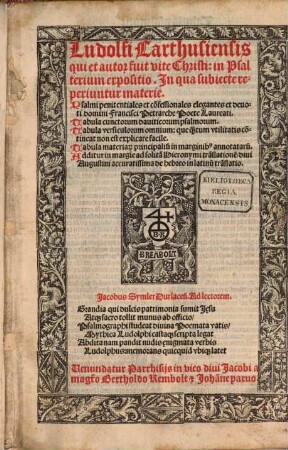 Ludolfi Carthusiensis
qui et autor fuit vite Christi: in Psal
terium expositio. In qua subiecte re-
periuntur materie.
Psalmi penitentiales et cōfessionales elegantes et deuo
ti domini Francisci Petrarche Poete Laureati.
Tabula cunctorum dauiticorum psalmorum.
Tabula versiculorum omnium: que quantum vtilitatis cō
tineat non est explicare facile.
Tabula materiarum principaliū in marginibus annotatarū.
Additur in margine ad solitā Hieronymi trāslationē diui
Augustini accuratissima de hebreo in latinū trāslatio.
BIBLIOTHECA
REGIA
MONACENSIS
BREBOLT
Jacobus Symler Durlacen. Ad lectorem.
Grandia qui dulcis patrimonia sumit Jesu
Atque sacro tollit munus ab officio/
Psalmographi studeat diuina Poemata vatis/
Mythica Ludolphi castaque scripta legat
Abdita nam pandit nudis enigmata verbis
Ludolphus: memorans quicquid vbique latet
Venundatur Parrhisijs in vico diui Jacobi a
magrō Bertholdo Rembolt & Johāne paruo